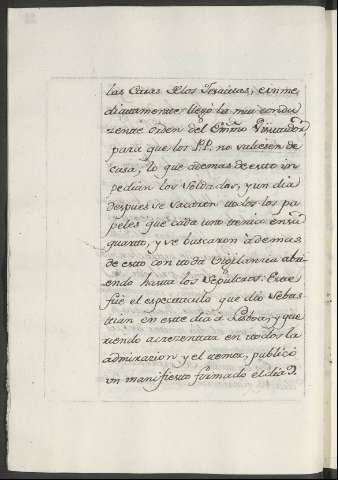 las Casas de los Jesuitas; è inme,
diatamente llegó la mui condu
zente orden del Emño Visitadōr
para que los PP. no saliesen de
casa, lo que ademas de esto im
pedian los Soldados, y un dia
despues se sacaron todos los pa
peles que cada uno tenia en su
quarto, y se buscaron àdemas
de esto con toda vigilancia abri
endo hasta los Sepulcros: Este
fuè el espectaculo que dió Sebas
tian en este dia à Lisboa, y que
riendo acrezentar en todos la
admiracion y el temor, publicó
un manifiesto formado el dia 9.